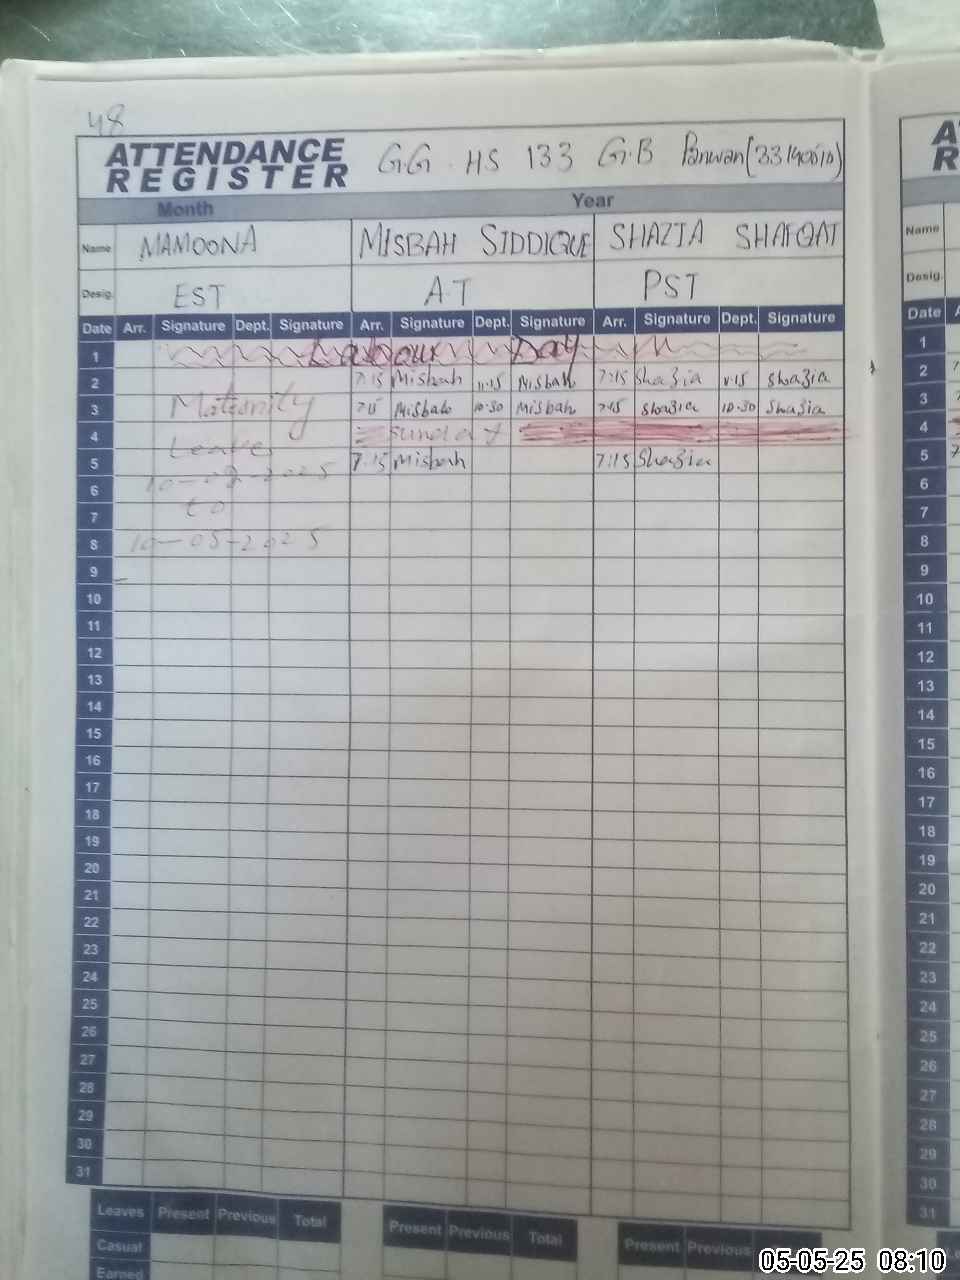 48
ATTENDANCE REGISTER G.G. HS 133 G.B Panwan
Month Year
Name MAMOONA MISBAH SIDDIQUE SHAZIA SHAFQAT
Desig. EST A.T PST
Date Arr. Signature Dept. Signature Arr. Signature Dept. Signature Arr. Signature Dept. Signature
1 Labour Day
2 7:15 Misbah 11:15 Misbah 7:15 Shazia 11:15 Shazia
3 Maternity 7:15 Misbah 10:30 Misbah 7:15 Shazia 10:30 Shazia
4 Leave Sunday
5 7:15 Misbah 7:15 Shazia
6
7 to
8 10-05-2025
9
10
11
12
13
14
15
16
17
18
19
20
21
22
23
24
25
26
27
28
29
30
31
Leaves Present Previous Total Present Previous Total Present Previous
Casual
Earned
Name
Desig.
Date
1
2
3
4
5
6
7
8
9
10
11
12
13
14
15
16
17
18
19
20
21
22
23
24
25
26
27
28
29
30
31
05-05-25 08:10